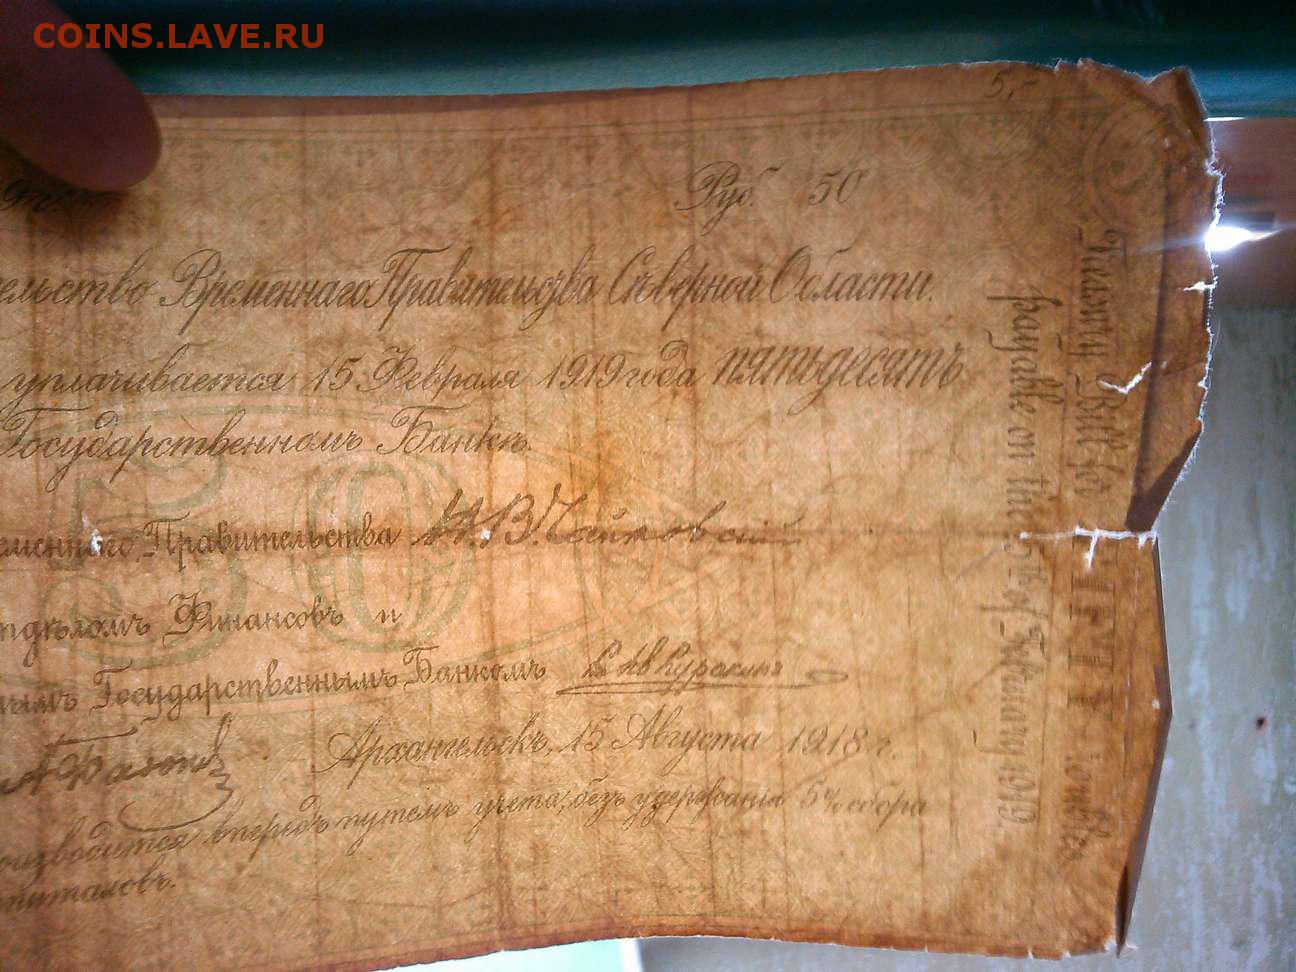 COINS.LAVE.RU
5,-
Руб. 50
ельство Временнаго Правительства Сѣверной Области.
уплачивается 15 Февраля 1919 года пятьдесятъ
Государственномъ Банкѣ.
50
еменнаго Правительства Н.В. Чайковскій
тдѣломъ Финансовъ и
нымъ Государственнымъ Банкомъ
Архангельскъ, 15 Августа 1918 г.
оизводится впередъ путемъ учета, безъ удержанія 5% сбора
питаловъ.
Treasury Bill for
payable on the 15th of February 1919.
FIFTY roubles